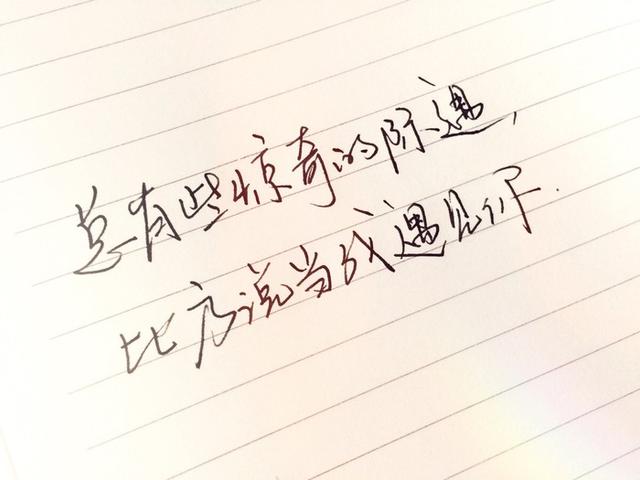 总有些惊奇的际遇，
比方说当我遇见你.